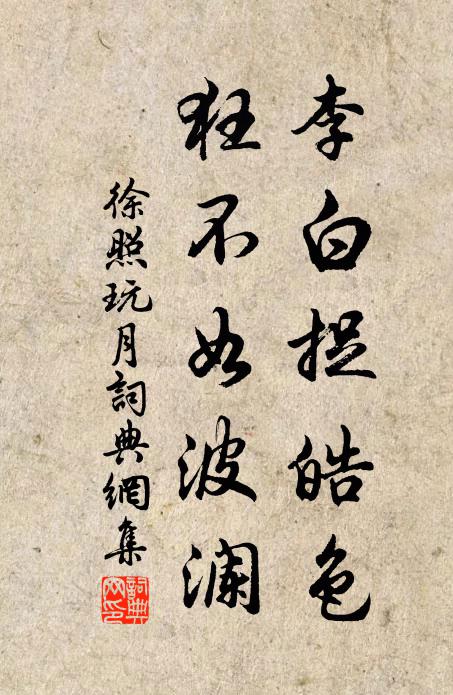 李白捉皓色
狂不如波澜
徐照玩月詞典網集
詞典網印